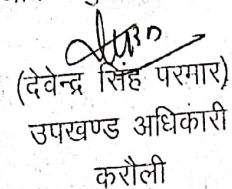 (देवेन्द्र सिंह परमार)
उपखण्ड अधिकारी
करौली